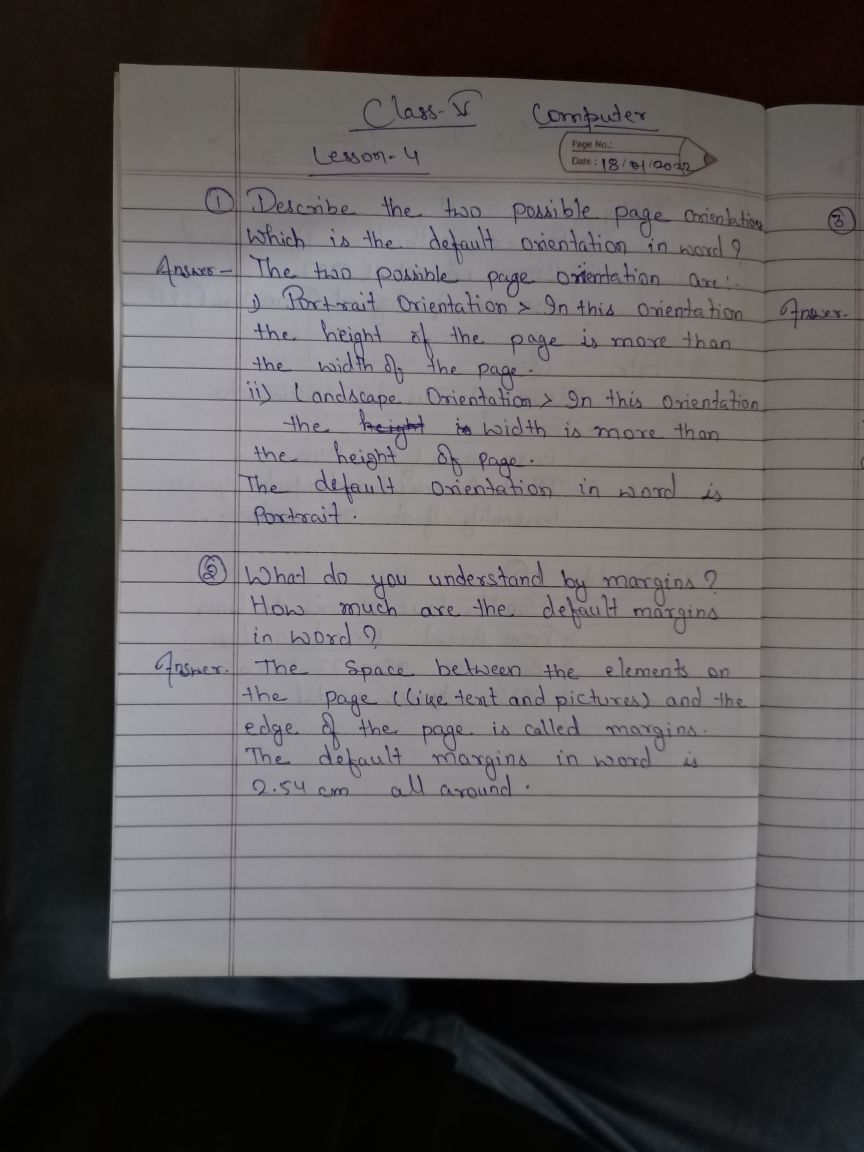 Class-V Computer
Lesson-4
Page No.:
Date: 18/01/2022
① Describe the two possible page orientation
Which is the default orientation in word?
Answer- The two possible page orientation are:-
i) Portrait Orientation > In this orientation
the height of the page is more than
the width of the page.
ii) Landscape Orientation > In this orientation
the height is width is more than
the height of page.
The default orientation in word is
Portrait.
② What do you understand by margins?
How much are the default margins
in word?
Answer. The Space between the elements on
the page (like text and pictures) and the
edge of the page is called margins.
The default margins in word is
2.54 cm all around.
③
Answer-